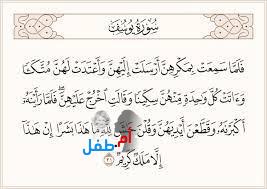 سُورَةُ يُوسُفَ
فَلَمَّا سَمِعَتْ بِمَكْرِهِنَّ أَرْسَلَتْ إِلَيْهِنَّ وَأَعْتَدَتْ لَهُنَّ مُتَّكَـًٔا
وَءَاتَتْ كُلَّ وَٰحِدَةٍ مِّنْهُنَّ سِكِّينًا وَقَالَتِ ٱخْرُجْ عَلَيْهِنَّ ۖ فَلَمَّا رَأَيْنَهُۥٓ
أَكْبَرْنَهُۥ وَقَطَّعْنَ أَيْدِيَهُنَّ وَقُلْنَ حَٰشَ لِلَّهِ مَا هَٰذَا بَشَرًا إِنْ هَٰذَآ
أم طفل
إِلَّا مَلَكٌ كَرِيمٌ ٣١